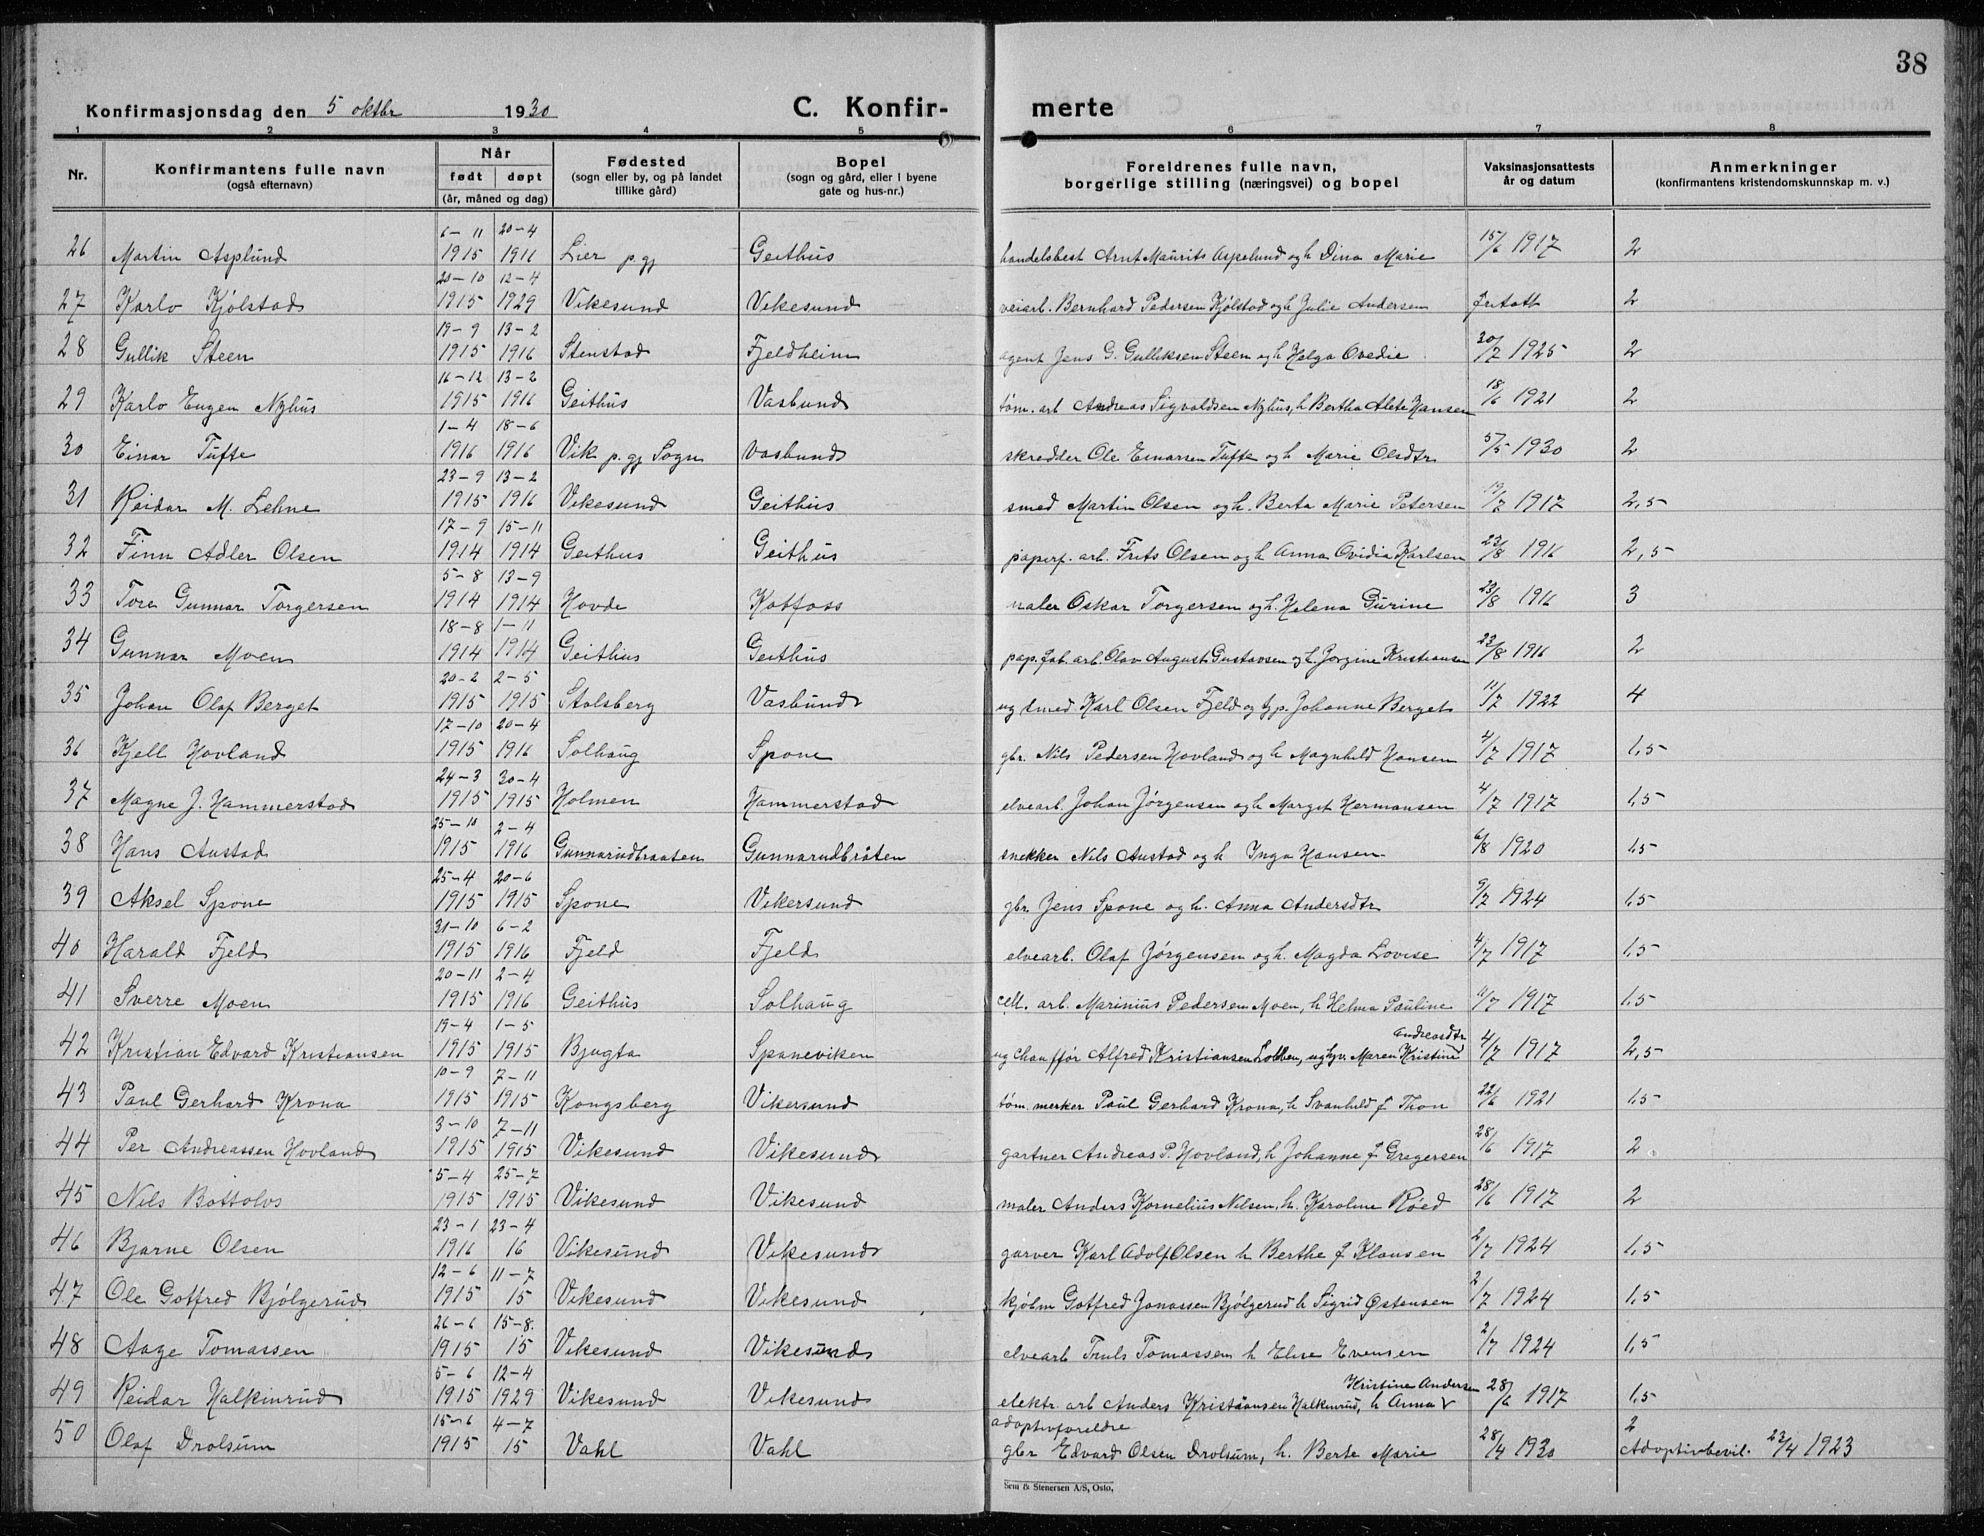 38
Konfirmasjonsdag den 5 oktbr 1930
C. Konfir- merte
1 2 3 4 5 6 7 8
Nr.
Konfirmantens fulle navn
(også efternavn)
Når
født døpt
(år, måned og dag)
Fødested
(sogn eller by, og på landet
tillike gård)
Bopel
(sogn og gård, eller i byene
gate og hus-nr.)
Foreldrenes fulle navn,
borgerlige stilling (næringsvei) og bopel
Vaksinasjonsattests
år og datum
Anmerkninger
(konfirmantens kristendomskunnskap m. v.)
6-11 20-4
26 Martin Asplund 1915 1916 Lier p.gj Geithus handelsbest Arnt Maurits Aspelund og h Dina Marie 15/6 1917 2
20-10 12-4
27 Karlo Kjølstad 1915 1929 Vikesund Vikesund veiarb. Bernhard Pedersen Kjølstad og h Julie Andersen fritatt 2
19-9 13-2
28 Gullik Steen 1915 1916 Stenstad Fjeldheim agent Jens G. Gulliksen Steen og h Helga Ovedie 20/7 1925 2
16-12 13-2
29 Karlo Eugen Nyhus 1915 1916 Geithus Vasbund tøm. arb Andreas Sigvaldsen Nyhus, h Bertha Alete Hansen 18/6 1921 2
1-4 18-6
30 Einar Tufte 1916 1916 Vik p.gj Sogn Vasbund skredder Ole Einarsen Tufte og h Marie Olsdtr 5/5 1930 2
23-9 13-2
31 Reidar M. Lehne 1915 1916 Vikesund Geithus smed Martin Olsen og h. Berta Marie Petersen 19/7 1917 2,5
17-9 15-11
32 Finn Adler Olsen 1914 1914 Geithus Geithus papirf. arb. Frits Olsen og h Anna Ovidia Karlsen 23/8 1916 2,5
5-8 13-9
33 Tore Gunnar Torgersen 1914 1914 Hovde Kotfoss maler Oskar Torgersen og h. Helena Gurine 23/8 1916 3
18-8 1-11
34 Gunnar Moen 1914 1914 Geithus Geithus pap. fab. arb. Olav August Gustavsen og h. Jorgine Kristiansen 23/8 1916 2
20-2 2-5
35 Johan Olaf Berget 1915 1915 Stalsberg Vasbund ug smed Karl Olsen Fjeld og hp. Johanne Berget 11/7 1922 4
17-10 20-4
36 Kjell Hovland 1915 1916 Solhaug Spone gbr. Nils Pedersen Hovland og h Magnhild Hansen 4/7 1917 1,5
24-3 30-4
37 Magne J. Hammerstad 1915 1915 Holmen Hammerstad elvearb. Johan Jørgensen og h Marget Hermansen 4/7 1917 1,5
25-10 2-4
38 Hans Austad 1915 1916 Gunnarudbraaten Gunnarudbråten snekker Nils Austad og h Inga Hansen 6/8 1920 1,5
25-4 20-6
39 Aksel Spone 1915 1915 Spone Vikersund gbr. Jens Spone og h. Anna Andersdtr 9/7 1924 1,5
31-10 6-2
40 Harald Fjeld 1915 1916 Fjeld Fjeld elvearb. Olaf Jørgensen og h. Magda Lovise 4/7 1917 1,5
20-11 2-4
41 Sverre Moen 1915 1916 Geithus Solhaug cell. arb. Marinius Pedersen Moen, h Helma Pauline /7 1917 1,5
19-4 1-5 Andreasdtr
42 Kristian Edvard Kristiansen 1915 1915 Bjugta Sponeviken ug chauffør Alfred Kristiansen Lobben, ug hp. Maren Kristine 4/7 1917 2,5
10-9 7-11
43 Paul Gerhard Krona 1915 1915 Kongsberg Vikersund tøm. merker Paul Gerhard Krona, h Svanhild f Thon 22/6 1921 1,5
3-10 7-11
44 Per Andreassen Hovland 1915 1915 Vikesund Vikesund gartner Andreas P. Hovland, h Johanne f Gregersen 28/6 1917 2
5-4 25-7
45 Nils Bottolvs 1915 1915 Vikesund Vikesund maler Anders Kornelius Nilsen, h. Karoline Røed 28/6 1917 2
23-1 23-4
46 Bjarne Olsen 1916 16 Vikesund Vikesund garver Karl Adolf Olsen h Berthe f Klausen 2/7 1924 1,5
12-6 11-7
47 Ole Gotfred Bjølgerud 1915 15 Vikesund Vikesund kjølm Gotfred Jonassen Bjølgerud h Sigrid Østensen 2/7 1924 1,5
26-6 15-8.
48 Aage Tomassen 1915 15 Vikesund Vikesund elvearb Truls Tomassen h Elise Evensen 2/7 1924 1,5
5-6 12-4 Kristine Andersen
49 Reidar Halkinrud 1915 1929 Vikesund Vikesund elektr. arb Anders Kristiansen Halkinrud, h Anna 28/6 1917 1,5
15-6 4-7 adoptivforeldre 2
50 Olaf Drolsum 1915 15 Vahl Vahl gbr Edvard Olsen Drolsum, h. Berte Marie 28/4 1930 Adoptivbevil. 23/4 1923
Sem & Stenersen A/S, Oslo.